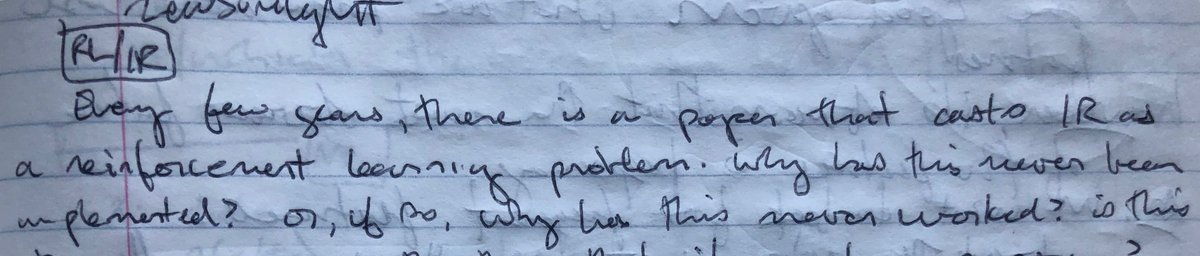 RL/IR
Every few years, there is a paper that casts IR as
a reinforcement learning problem. Why has this never been
implemented? Or, if so, why has this never worked? is this